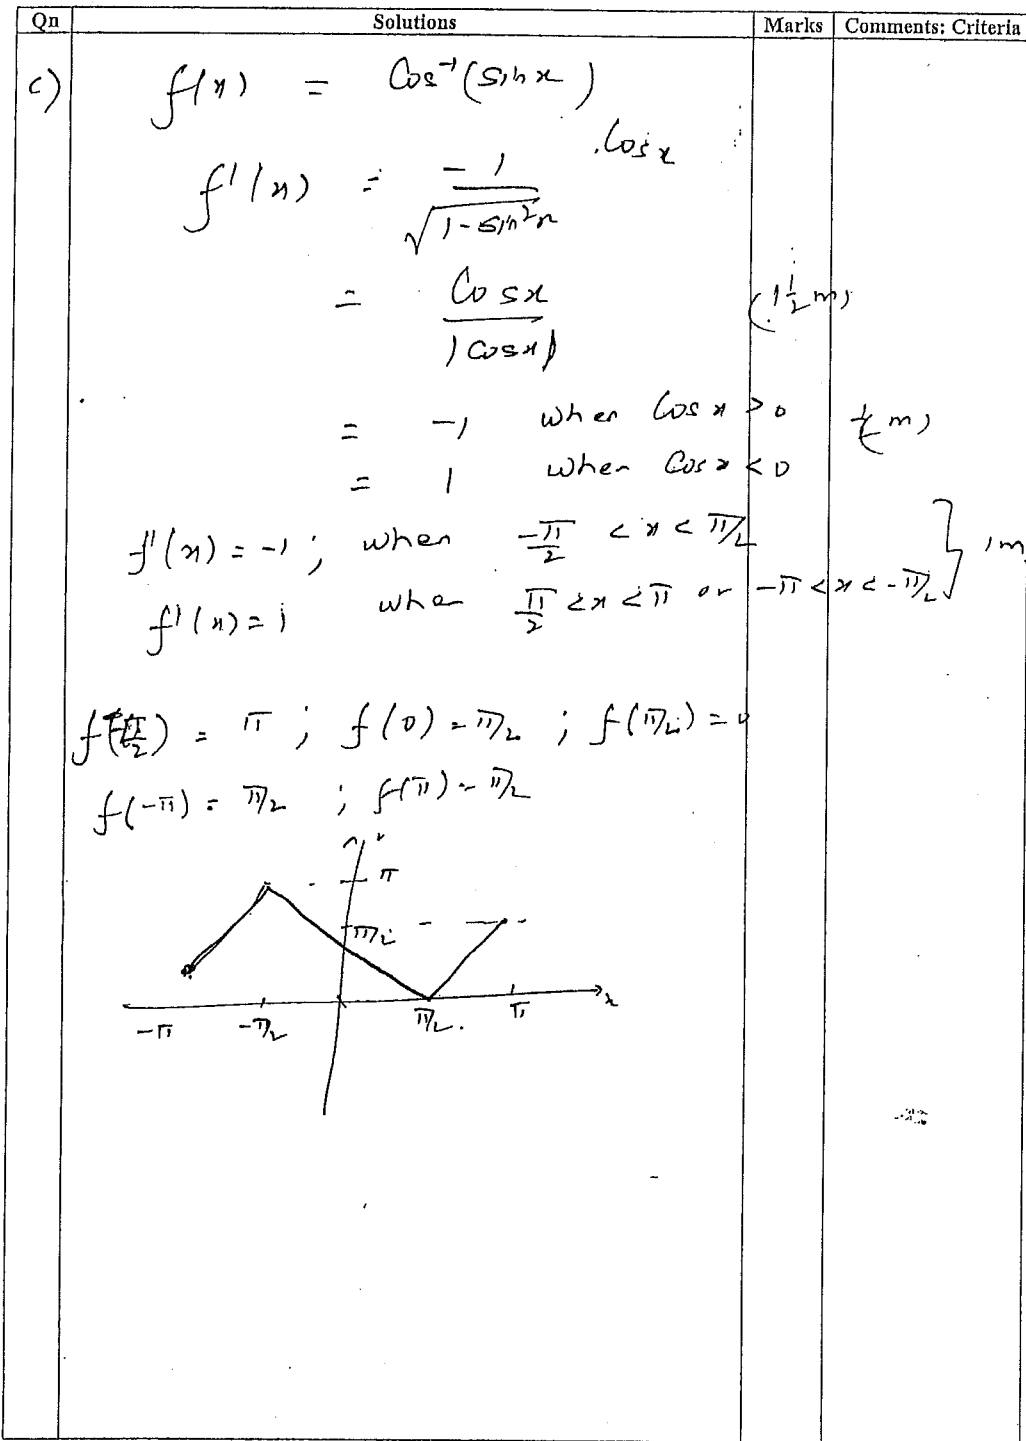 Qn Solutions Marks Comments: Criteria
c) f(x) = Cos⁻¹(sinx)
f'(x) = -1/√(1-sin²x) .Cosx
= Cosx/|cosx| (1½m)
= -1 when Cosx > 0 (½m)
= 1 when Cosx < 0
f'(x) = -1 ; when -π/2 < x < π/2
f'(x) = 1 when π/2 < x < π or -π < x < -π/2 } 1m
f(-π/2) = π ; f(0) = π/2 ; f(π/2) = 0
f(-π) = π/2 ; f(π) = π/2
π
π/2
-π -π/2 π/2. π x